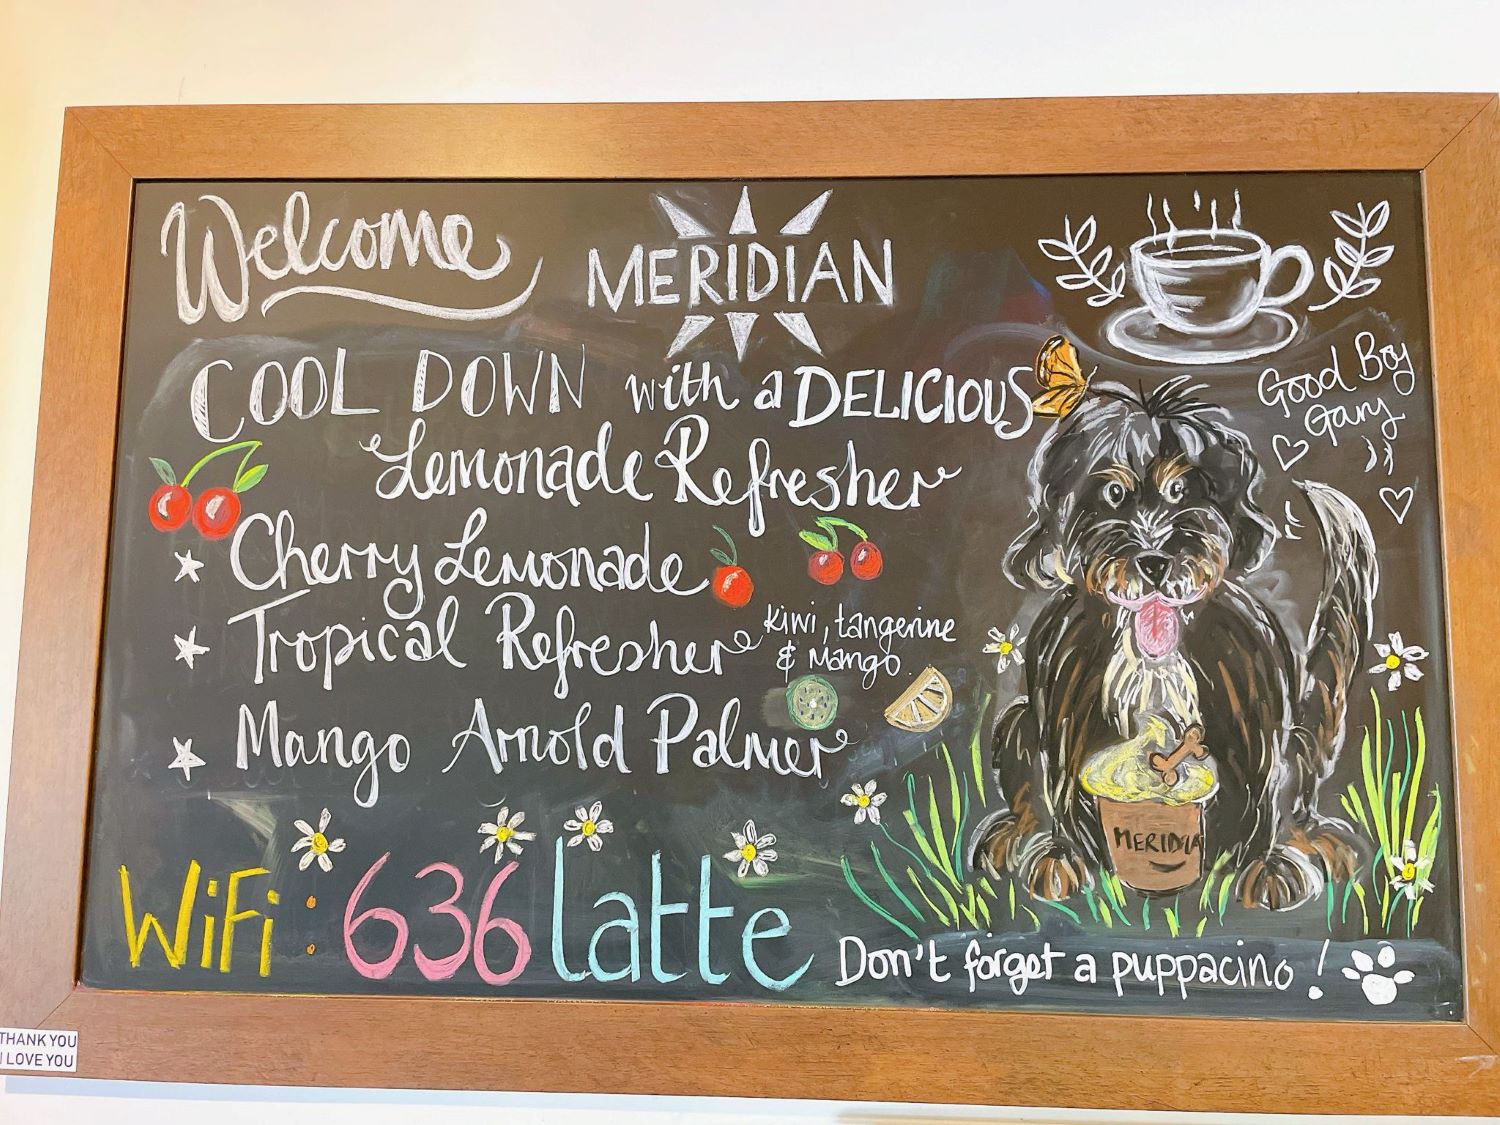 Welcome
MERIDIAN
COOL DOWN with a DELICIOUS
Lemonade Refresher
Good Boy
Gary
Cherry Lemonade
Tropical Refresher
kiwi, tangerine
& Mango
Mango Arnold Palmer
MERIDIA
WiFi : 636 latte
Don't forget a puppacino !
THANK YOU
I LOVE YOU